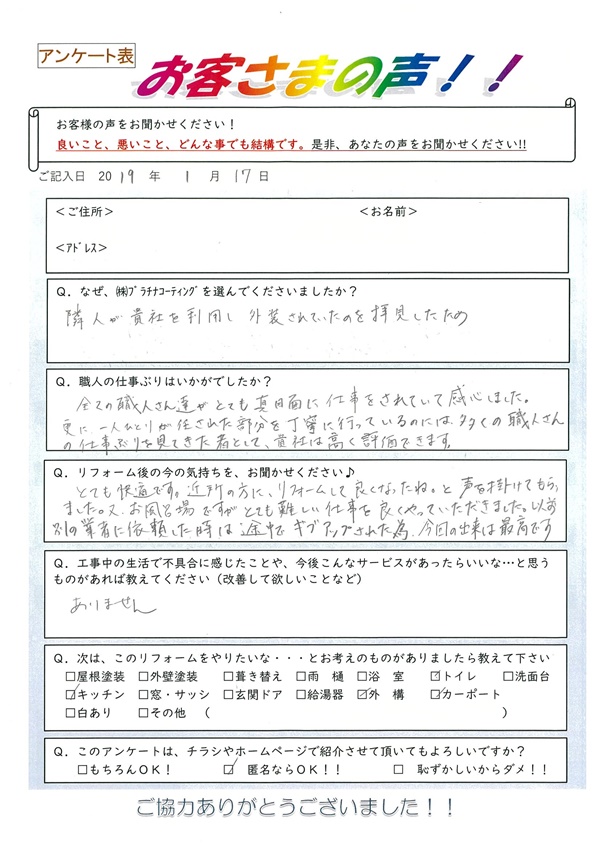 アンケート表
お客さまの声！！
お客様の声をお聞かせください！
良いこと、悪いこと、どんな事でも結構です。是非、あなたの声をお聞かせください!!
ご記入日 2019 年 1 月 17 日
＜ご住所＞ ＜お名前＞
＜ｱﾄﾞﾚｽ＞
Q．なぜ、㈱ﾌﾟﾗﾁﾅｺｰﾃｨﾝｸﾞを選んでくださいましたか？
隣人が貴社を利用し外装されていたのを拝見したため
Q．職人の仕事ぶりはいかがでしたか？
全ての職人さん達がとても真面目に仕事をされていて感心しました。
更に、一人ひとりが任された部分を丁寧に行っているのには、多くの職人さん
の仕事ぶりを見てきた者として、貴社は高く評価できます。
Q．リフォーム後の今の気持ちを、お聞かせください♪
とても快適です。近所の方に、リフォームして良くなったね。と声を掛けてもらい
ました。又、お風呂場ですがとても難しい仕事を良くやっていただきました。以前
別の業者に依頼した時は途中でギブアップされた為、今回の出来は最高です
Q．工事中の生活で不具合に感じたことや、今後こんなサービスがあったらいいな…と思う
ものがあれば教えてください（改善して欲しいことなど）
ありません
Q．次は、このリフォームをやりたいな・・・とお考えのものがありましたら教えて下さい
□屋根塗装 □外壁塗装 □葺き替え □雨 樋 □浴 室 ☑トイレ □洗面台
☑キッチン □窓・サッシ ☑玄関ドア □給湯器 ☑外 構 ☑カーポート
□白あり □その他 （ ）
Q．このアンケートは、チラシやホームページで紹介させて頂いてもよろしいですか？
□もちろんOK！ ☑ 匿名ならOK！！ □ 恥ずかしいからダメ！！
ご協力ありがとうございました！！